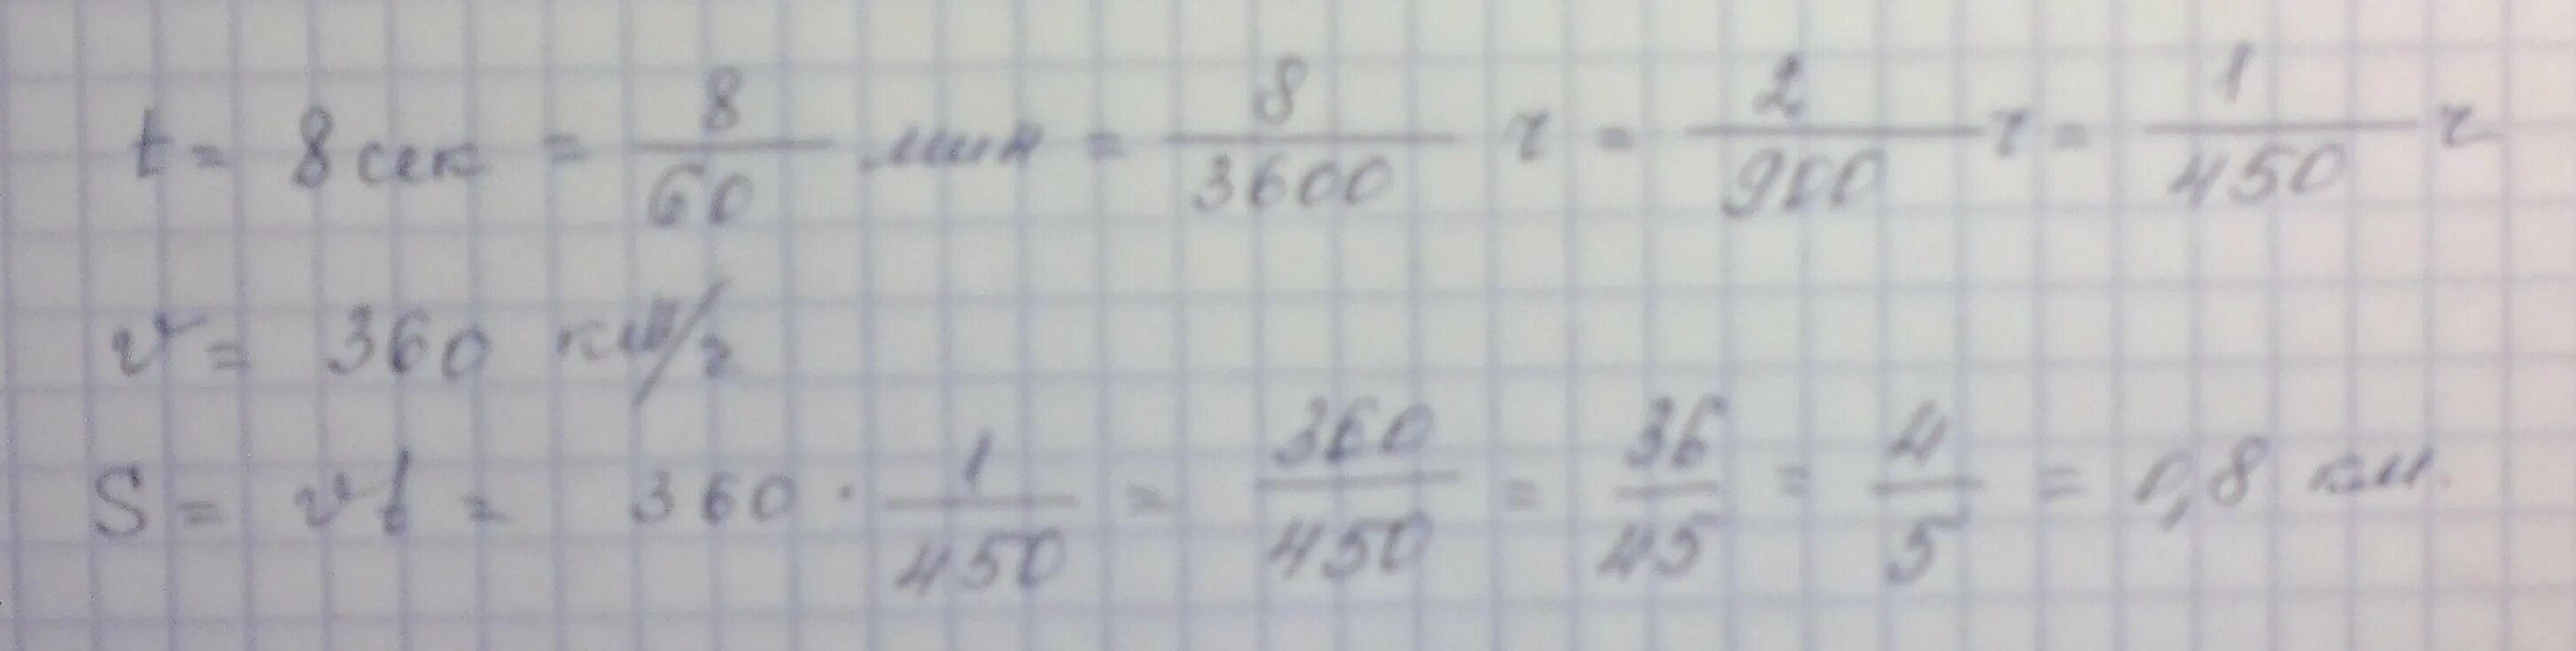 t = 8 сек = 8/60 мин = 8/3600 ч = 2/900 ч = 1/450 ч
v = 360 км/ч
S = vt = 360 · 1/450 = 360/450 = 36/45 = 4/5 = 0,8 км.